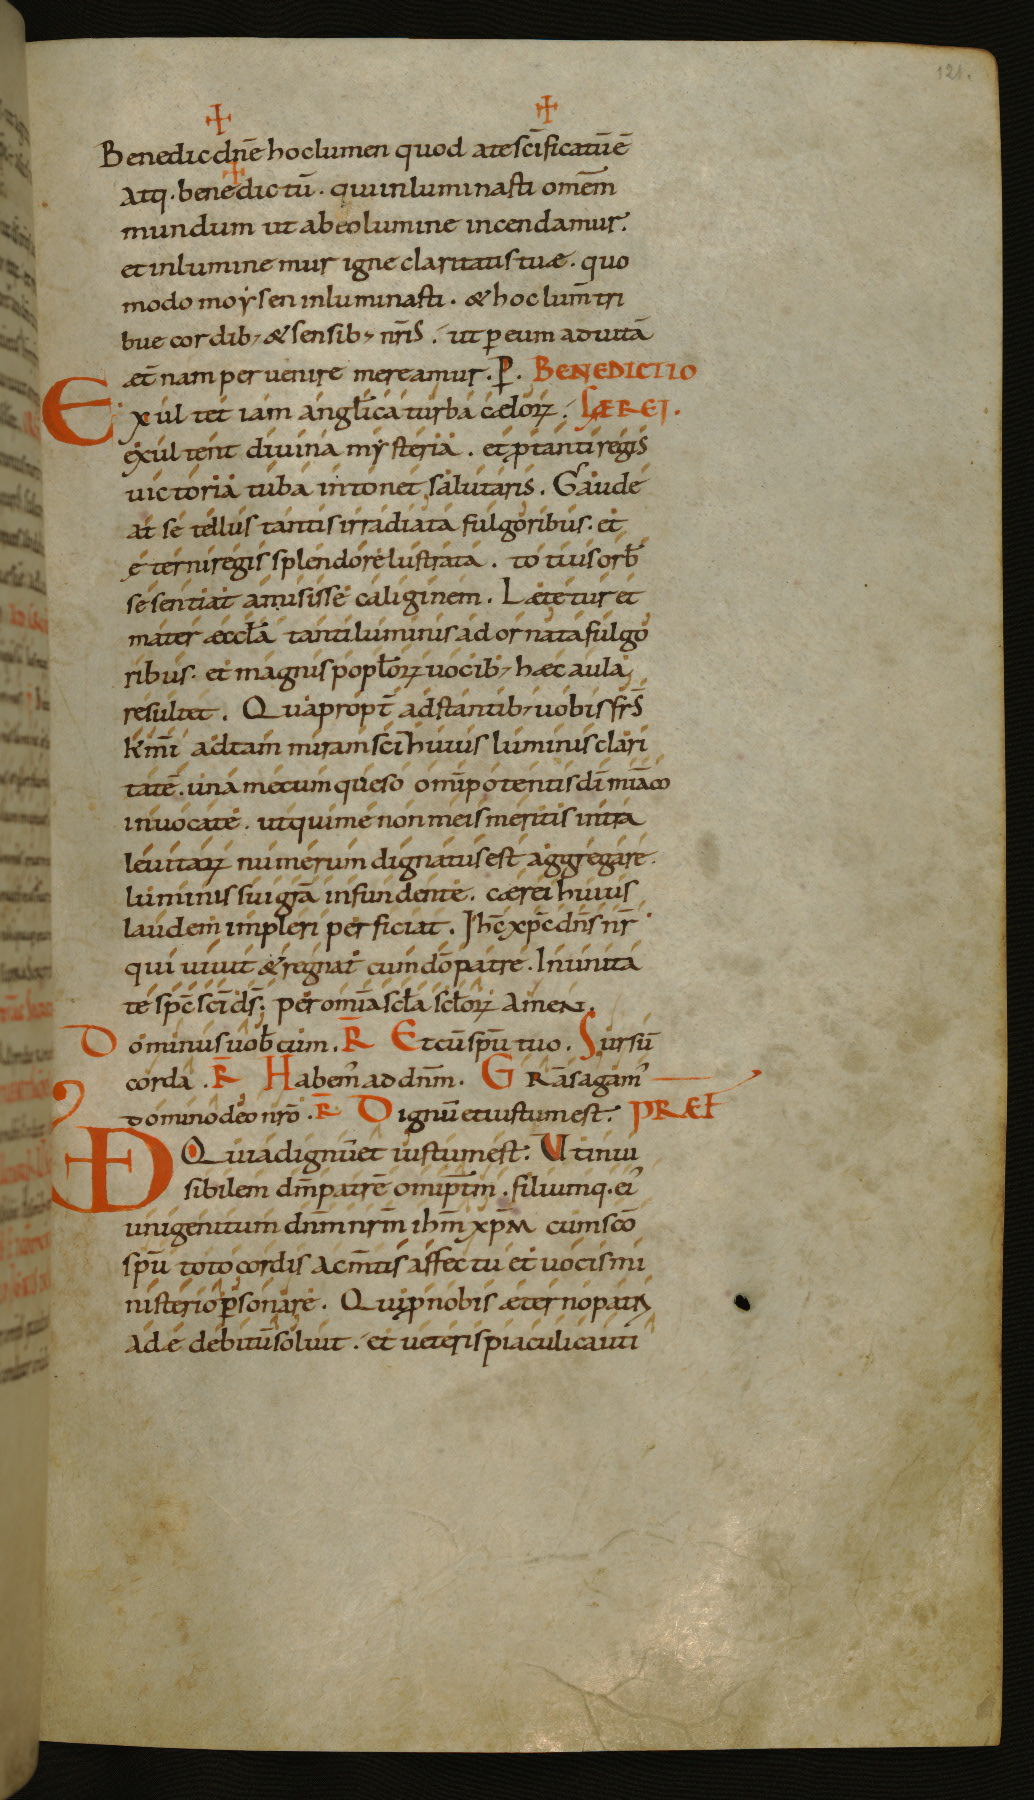 121.
Benedic dn̄e hoc lumen quod a te sc̄ificatū ē
Atq. benedictū. qui inluminasti omēm
mundum ut ab eo lumine incendamur.
et inluminemur igne claritatis tuæ. quo
modo moẏsen inluminasti. & hoc lum̄ tri
bue cordib; & sensib; nr̄is. ut ꝑ eum ad uitā
æt̄nam peruenire mereamur. P̱. BENEDICTIO
Exultet iam angl̄ica turba cælorꝝ. CÆREI.
exultent diuina mẏsteria. et ꝓ tanti regis
uictoria tuba intonet salutaris. Gaude
at se tellus tantis irradiata fulgoribus. et
ęterni regis splendore lustrata. totius orb̄
se sentiat amisisse caliginem. Lætetur et
mater æccl̄a tanti luminis adornata fulgo
ribus. et magnis popl̄orꝝ uocib; hæc aula
resultet. Quapropt̄ adstantib; uobis fr̄s
km̄i ad tam miram sc̄i huius luminis clari
tatē. una mecum queso omip̄otentis dī miām
inuocate. ut qui me non meis meritis intra
leuitarꝝ numerum dignatus est aggregare.
luminis sui gr̄a infundente. cærei huius
laudem impleri perficiat. Ih̄c xp̄c dn̄s nr̄
qui uiuit & regnat cum dō patre. In unita
te sp̄c sc̄i ds̄. per omīa scl̄a scl̄orꝝ AMEN.
Dominus uob̄cum. R̄ Et cū sp̄u tuo. Sursū
corda. R̄ Habem' ad dn̄m. GRās agam'
domino dēo nrō. R̄ Dignū et iustum est. PREF̄
VD Quia dignū et iustum est. Ut inui
sibilem dm̄ patrē omip̄tm. filiumq. ei'
unigenitum dn̄m nrm̄ ihm̄ xp̄m cum sc̄o
sp̄u toto cordis ac m̄tis affectu et uocis mi
nisterio ꝑsonare. Qui ꝓ nobis æterno patri
Adæ debitū soluit. et ueteris piaculi cauti